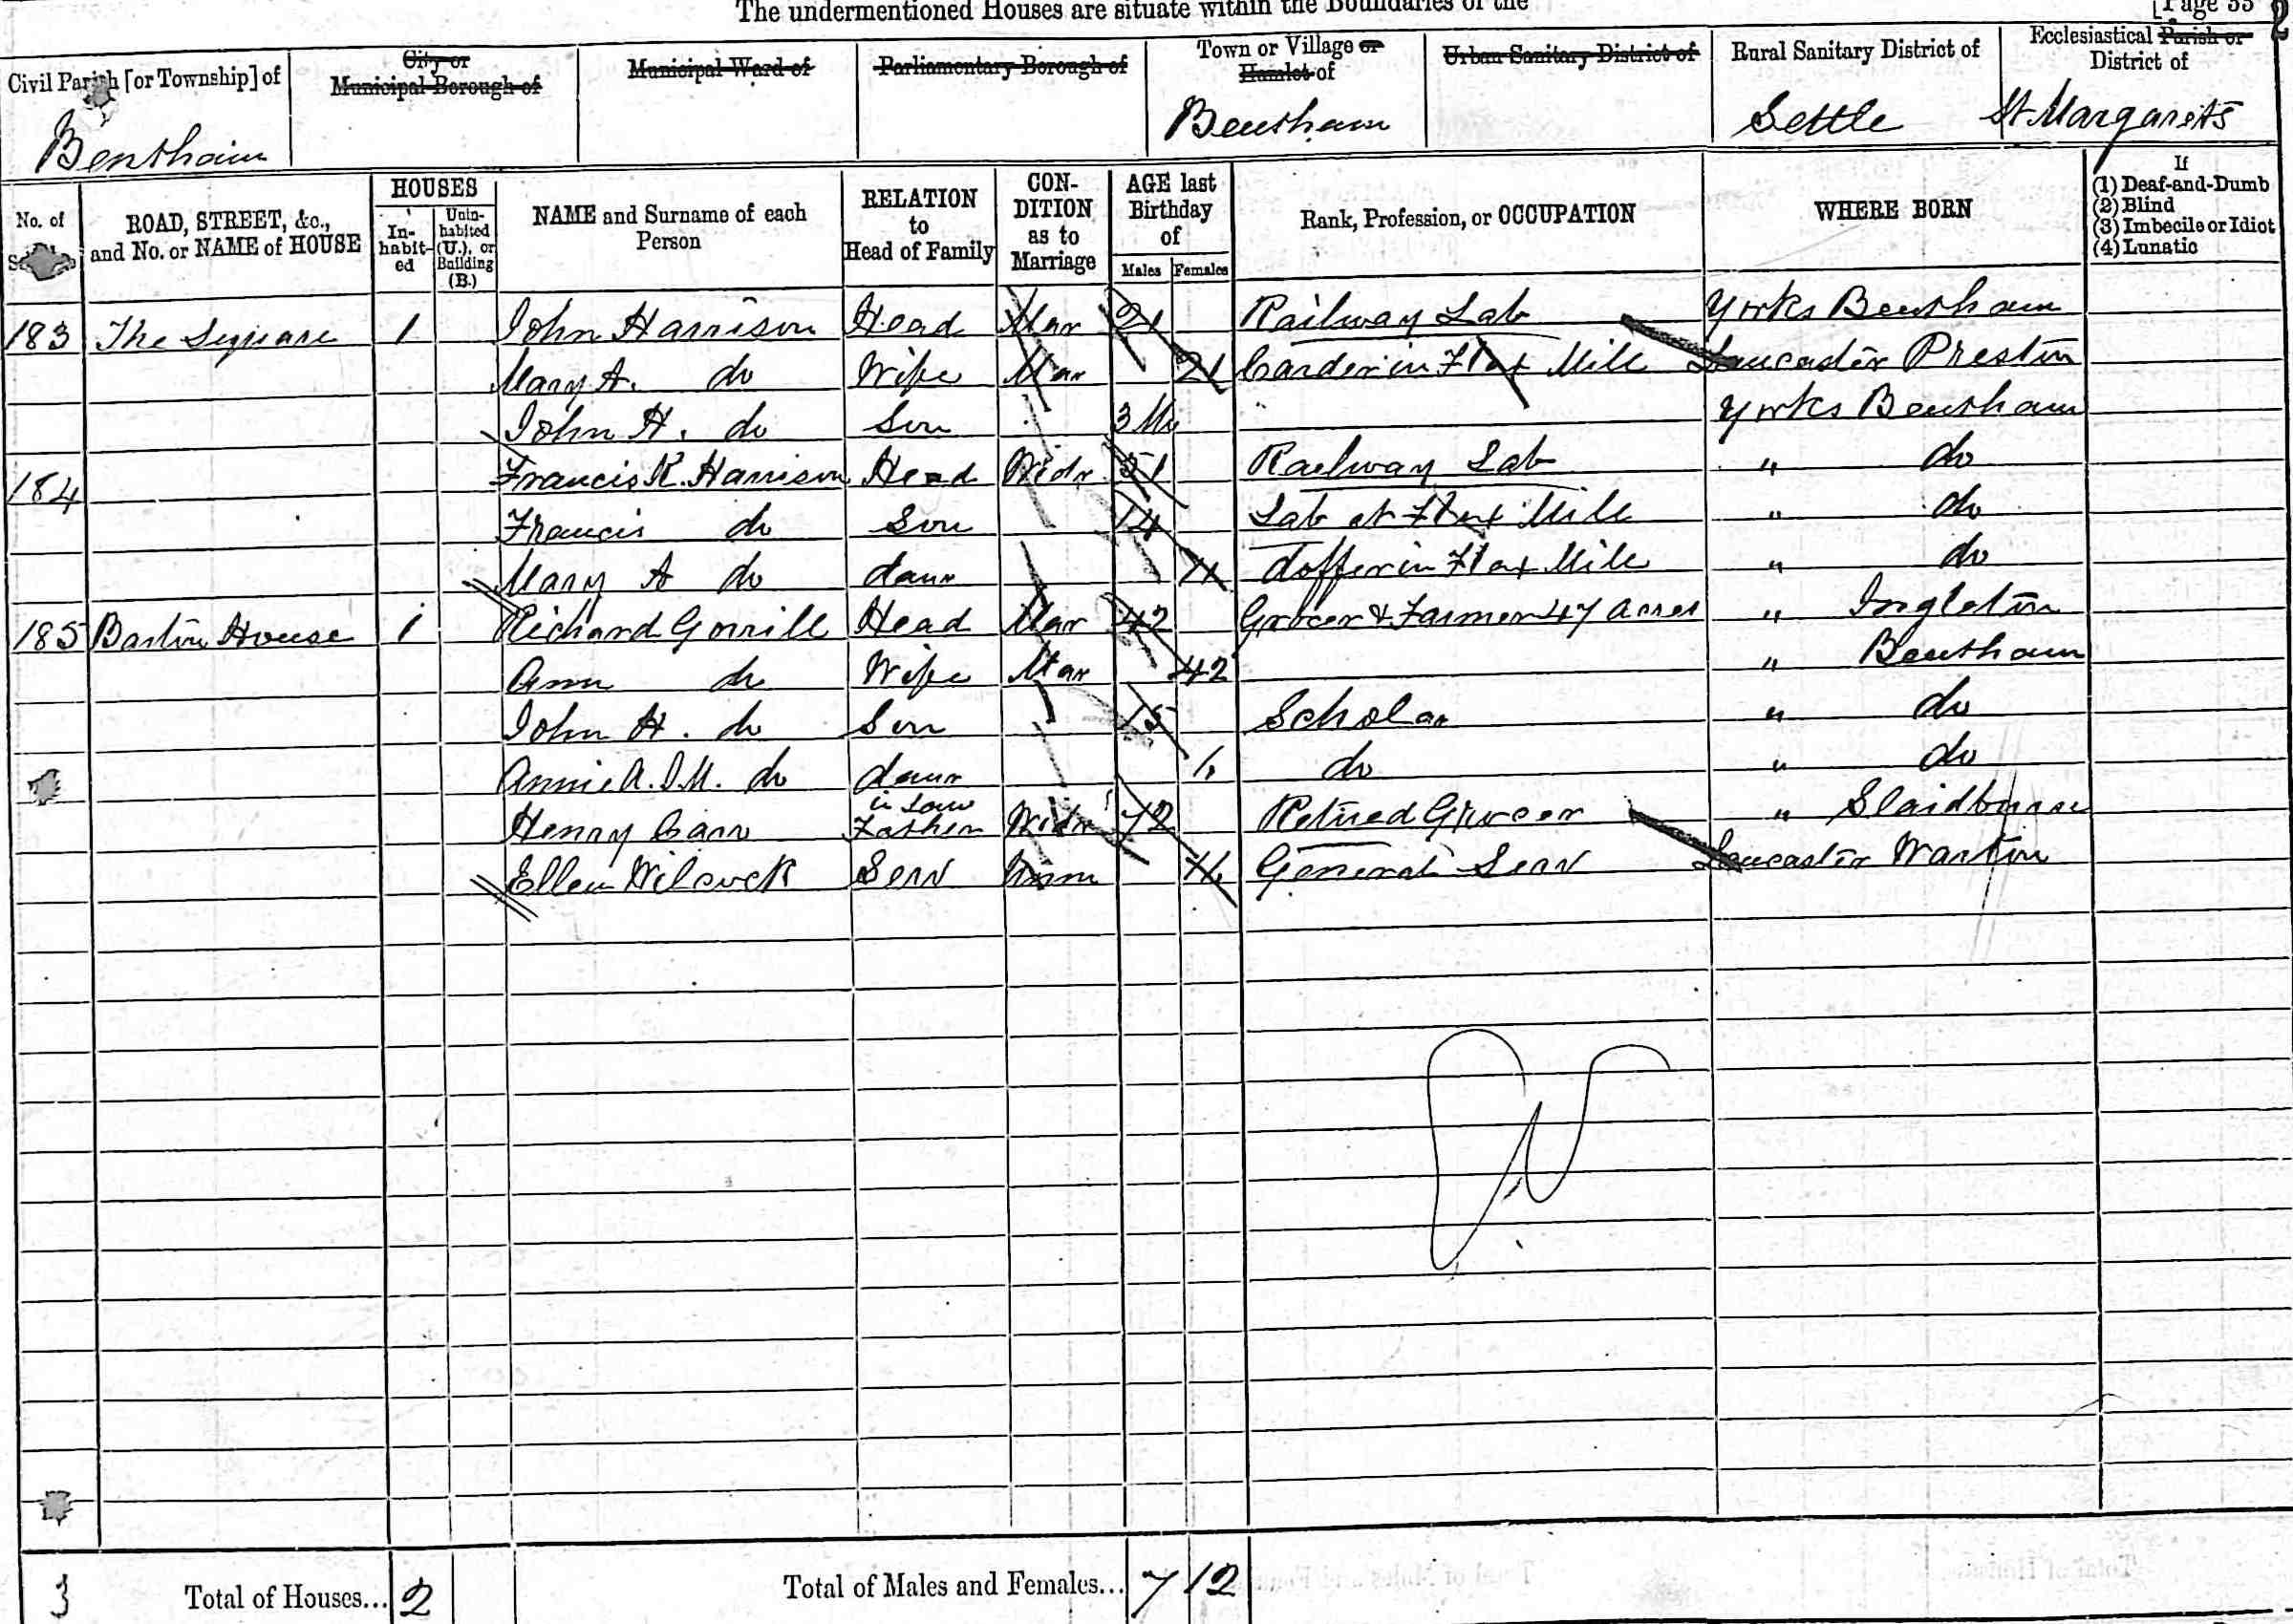 The undermentioned Houses are situate within the Boundaries of the [Page 33
Civil Parish [or Township] of City or Municipal Borough of Municipal Ward of Parliamentary Borough of Town or Village or Hamlet of Urban Sanitary District of Rural Sanitary District of Ecclesiastical Parish or District of
Bentham Bentham Settle St Margarets
No. of ROAD, STREET, &c., and No. or NAME of HOUSE HOUSES Inhabited Uninhabited (U.), or Building (B.) NAME and Surname of each Person RELATION to Head of Family CONDITION as to Marriage AGE last Birthday of Males Females Rank, Profession, or OCCUPATION WHERE BORN If (1) Deaf-and-Dumb (2) Blind (3) Imbecile or Idiot (4) Lunatic
183 The Square 1 John Harrison Head Mar 21 Railway Lab Yorks Bentham
Mary A. do Wife Mar 21 Carder in Flax Mill Lancaster Preston
John H. do Son 3 Mo Yorks Bentham
184 Francis R. Harrison Head Widr 51 Railway Lab " do
Francis do Son 14 Lab at Flax Mill " do
Mary A do daur 11 doffer in Flax Mill " do
185 Barton House 1 Richard Gorrill Head Mar 42 Grocer & Farmer 47 acres " Ingleton
Ann do Wife Mar 42 " Bentham
John H. do Son 15 Scholar " do
Annie A. I. M. do daur do " do
Henry Carr Father in Law Widr 72 Retired Grocer " Slaidburn
Ellen Wilcock Serv Unm 16 General Serv Lancaster Warton
3 Total of Houses... 2 Total of Males and Females... 7 12